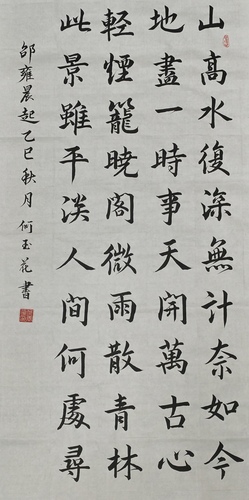 山高水復深無計奈如今
地盡一時事天開萬古心
輕煙籠曉閣微雨散青林
此景雖平淡人間何處尋
邵雍晨起乙巳秋月何玉花書